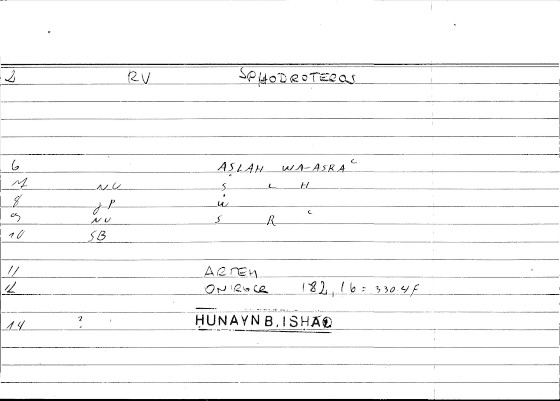 2 RV SPHODROTEROS
6 AṢLAḤ WA-ASRAʿ
7 NU Ṣ L Ḥ
8 JP W
9 NU S R ʿ
10 SB
11 ARTEM
12 ONIROCR 182,16 = 330.4F
14 ? HUNAYN B. ISHAQ